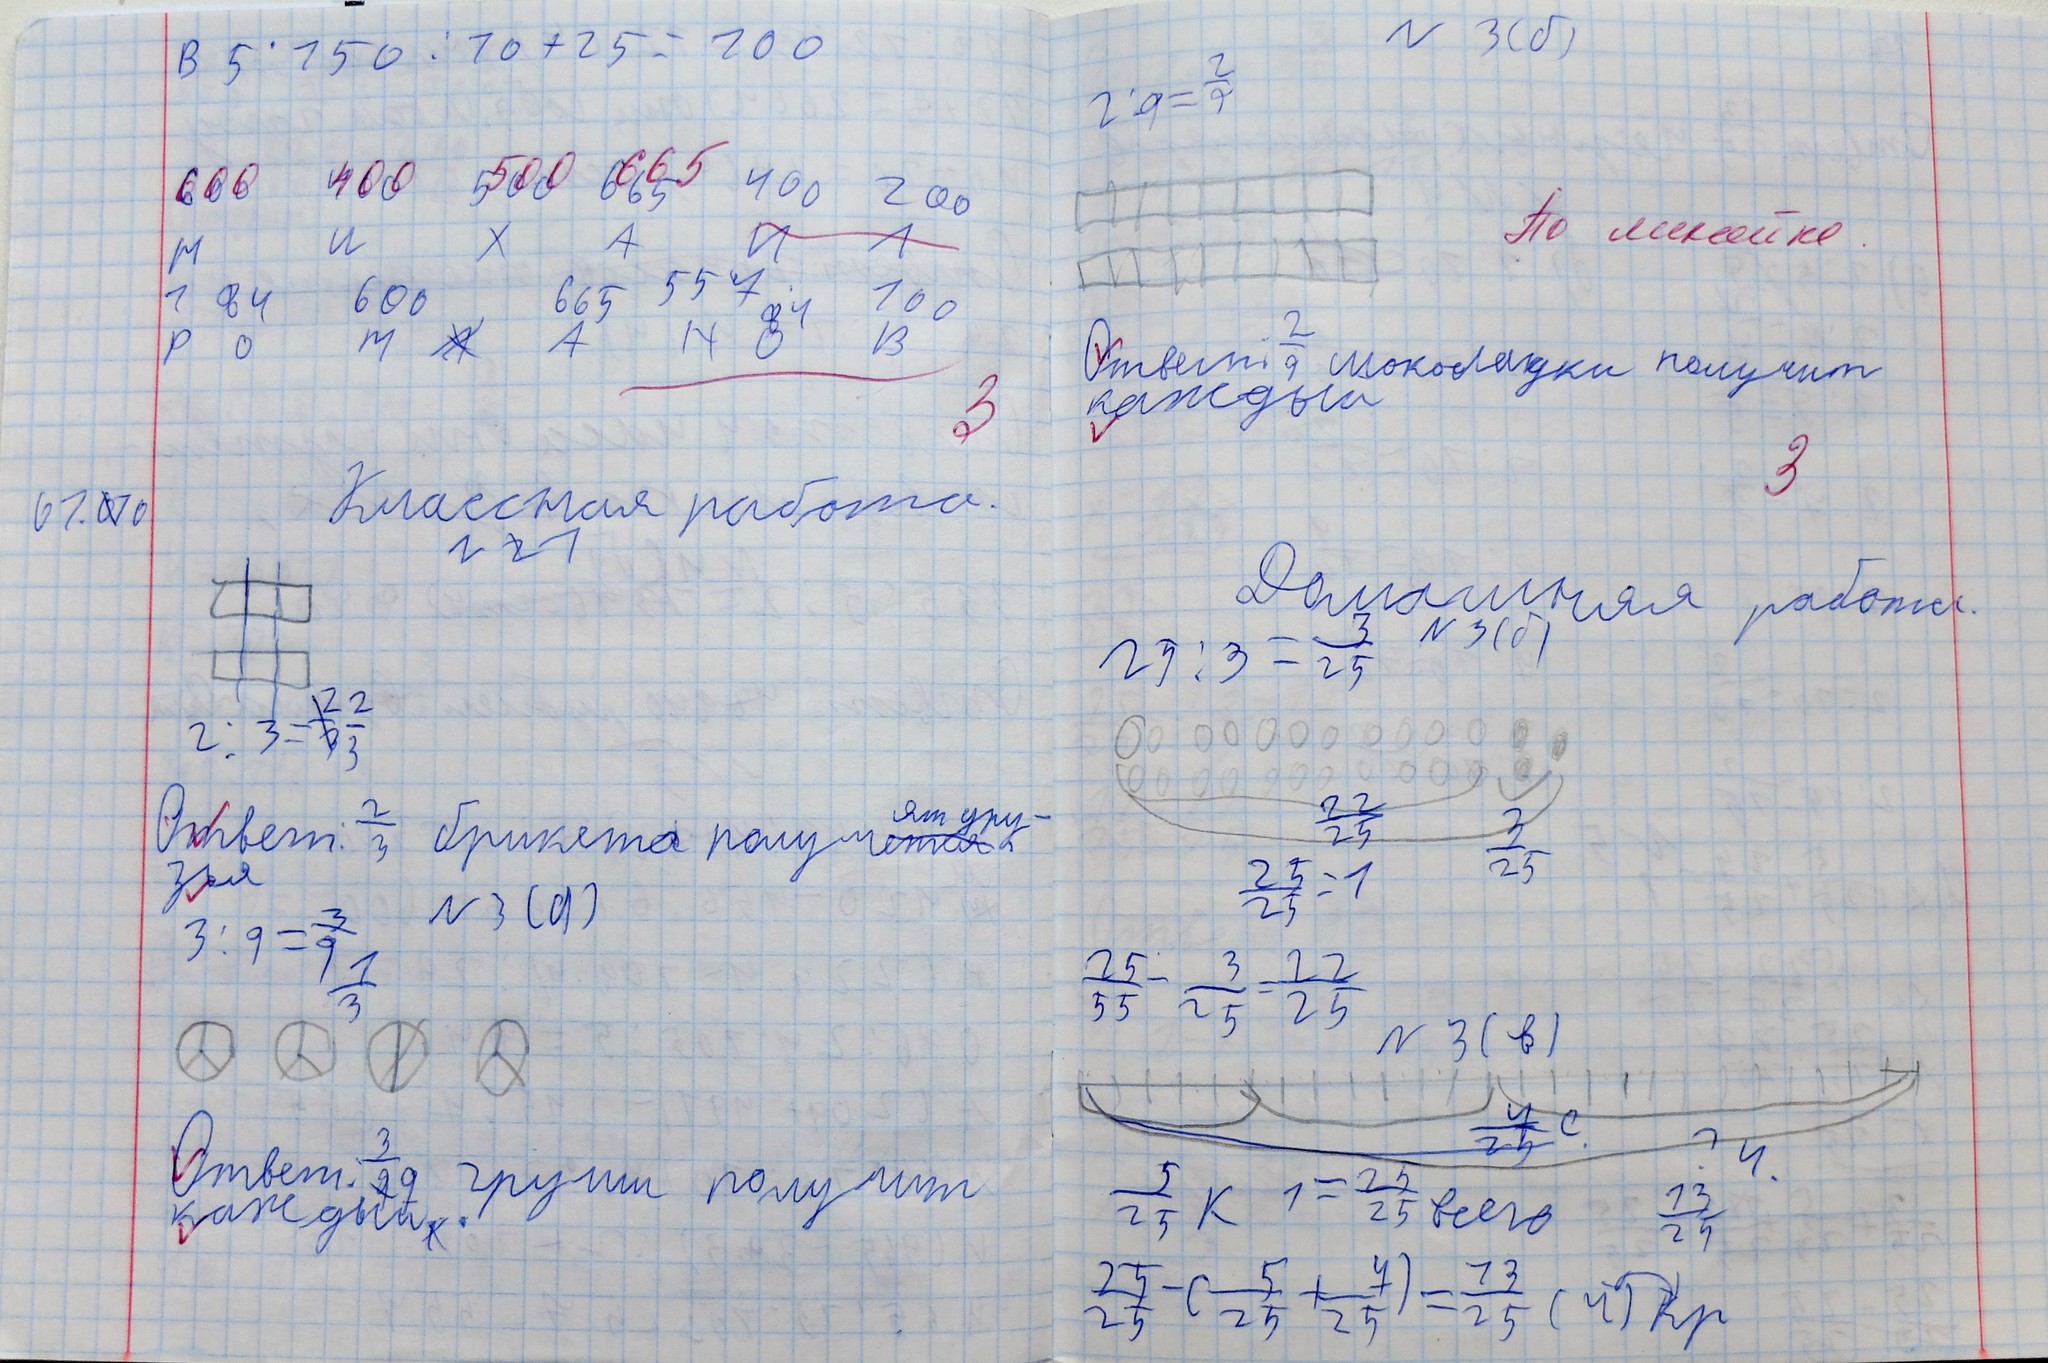 В 5 · 150 : 10 + 25 = 100
600 400 500 665 400 200
М И Х А И Л
1 84 600 665 557 84 100
Р О М А Н О В
3
Классная работа.
2 : 3 = 2/3
Ответ: 2/3 брикета получат дру-
зья
N 3 (а)
3 : 9 = 3/9
1/3
Ответ: 3/9 груши получит
каждый.
N 3(б)
2 : 9 = 2/9
По линейке.
Ответ: 2/9 шоколадки получит
каждый
3
Домашняя работа.
N 3(б)
25 : 3 = 3/25
22/25 3/25
25/25 = 1
25/55 - 3/25 = 22/25
N 3(в)
4/25 с. ? ч.
5/25 к 1 = 25/25 всего 13/25
25/25 - (5/25 + 4/25) = 13/25 (ч) кр